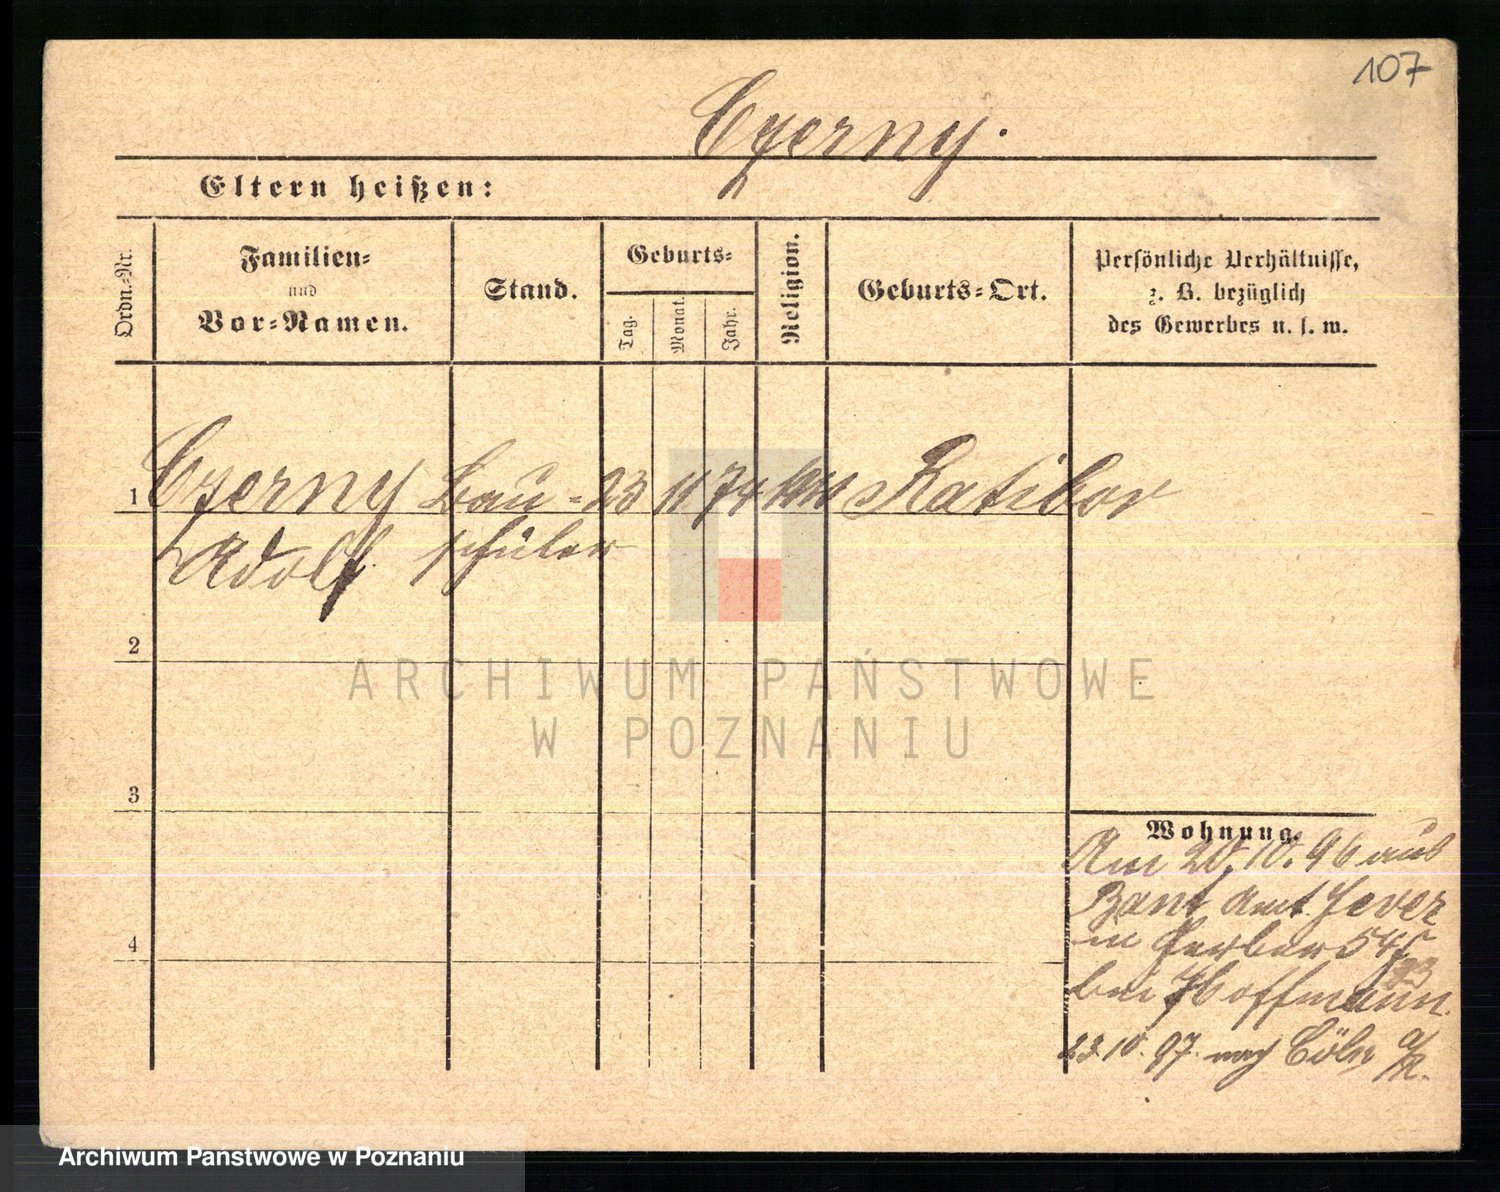 107
Czerny.
Eltern heißen:
Ordn.-Nr.
Familien- und Vor-Namen.
Stand.
Geburts-
Tag.
Monat.
Jahr.
Religion.
Geburts-Ort.
Persönliche Verhältnisse,
z. B. bezüglich
des Gewerbes u. s. w.
1 Czerny Bau- 23 11 74 Ratibor
Adolf. schüler
2
3
4
Wohnung.
Am 20.10.96 aus
Bant Amt Jever
in Gerber 54
bei Hoffmann.
23.10.97. nach Cöln a/R.
ARCHIWUM PAŃSTWOWE
W POZNANIU
Archiwum Państwowe w Poznaniu